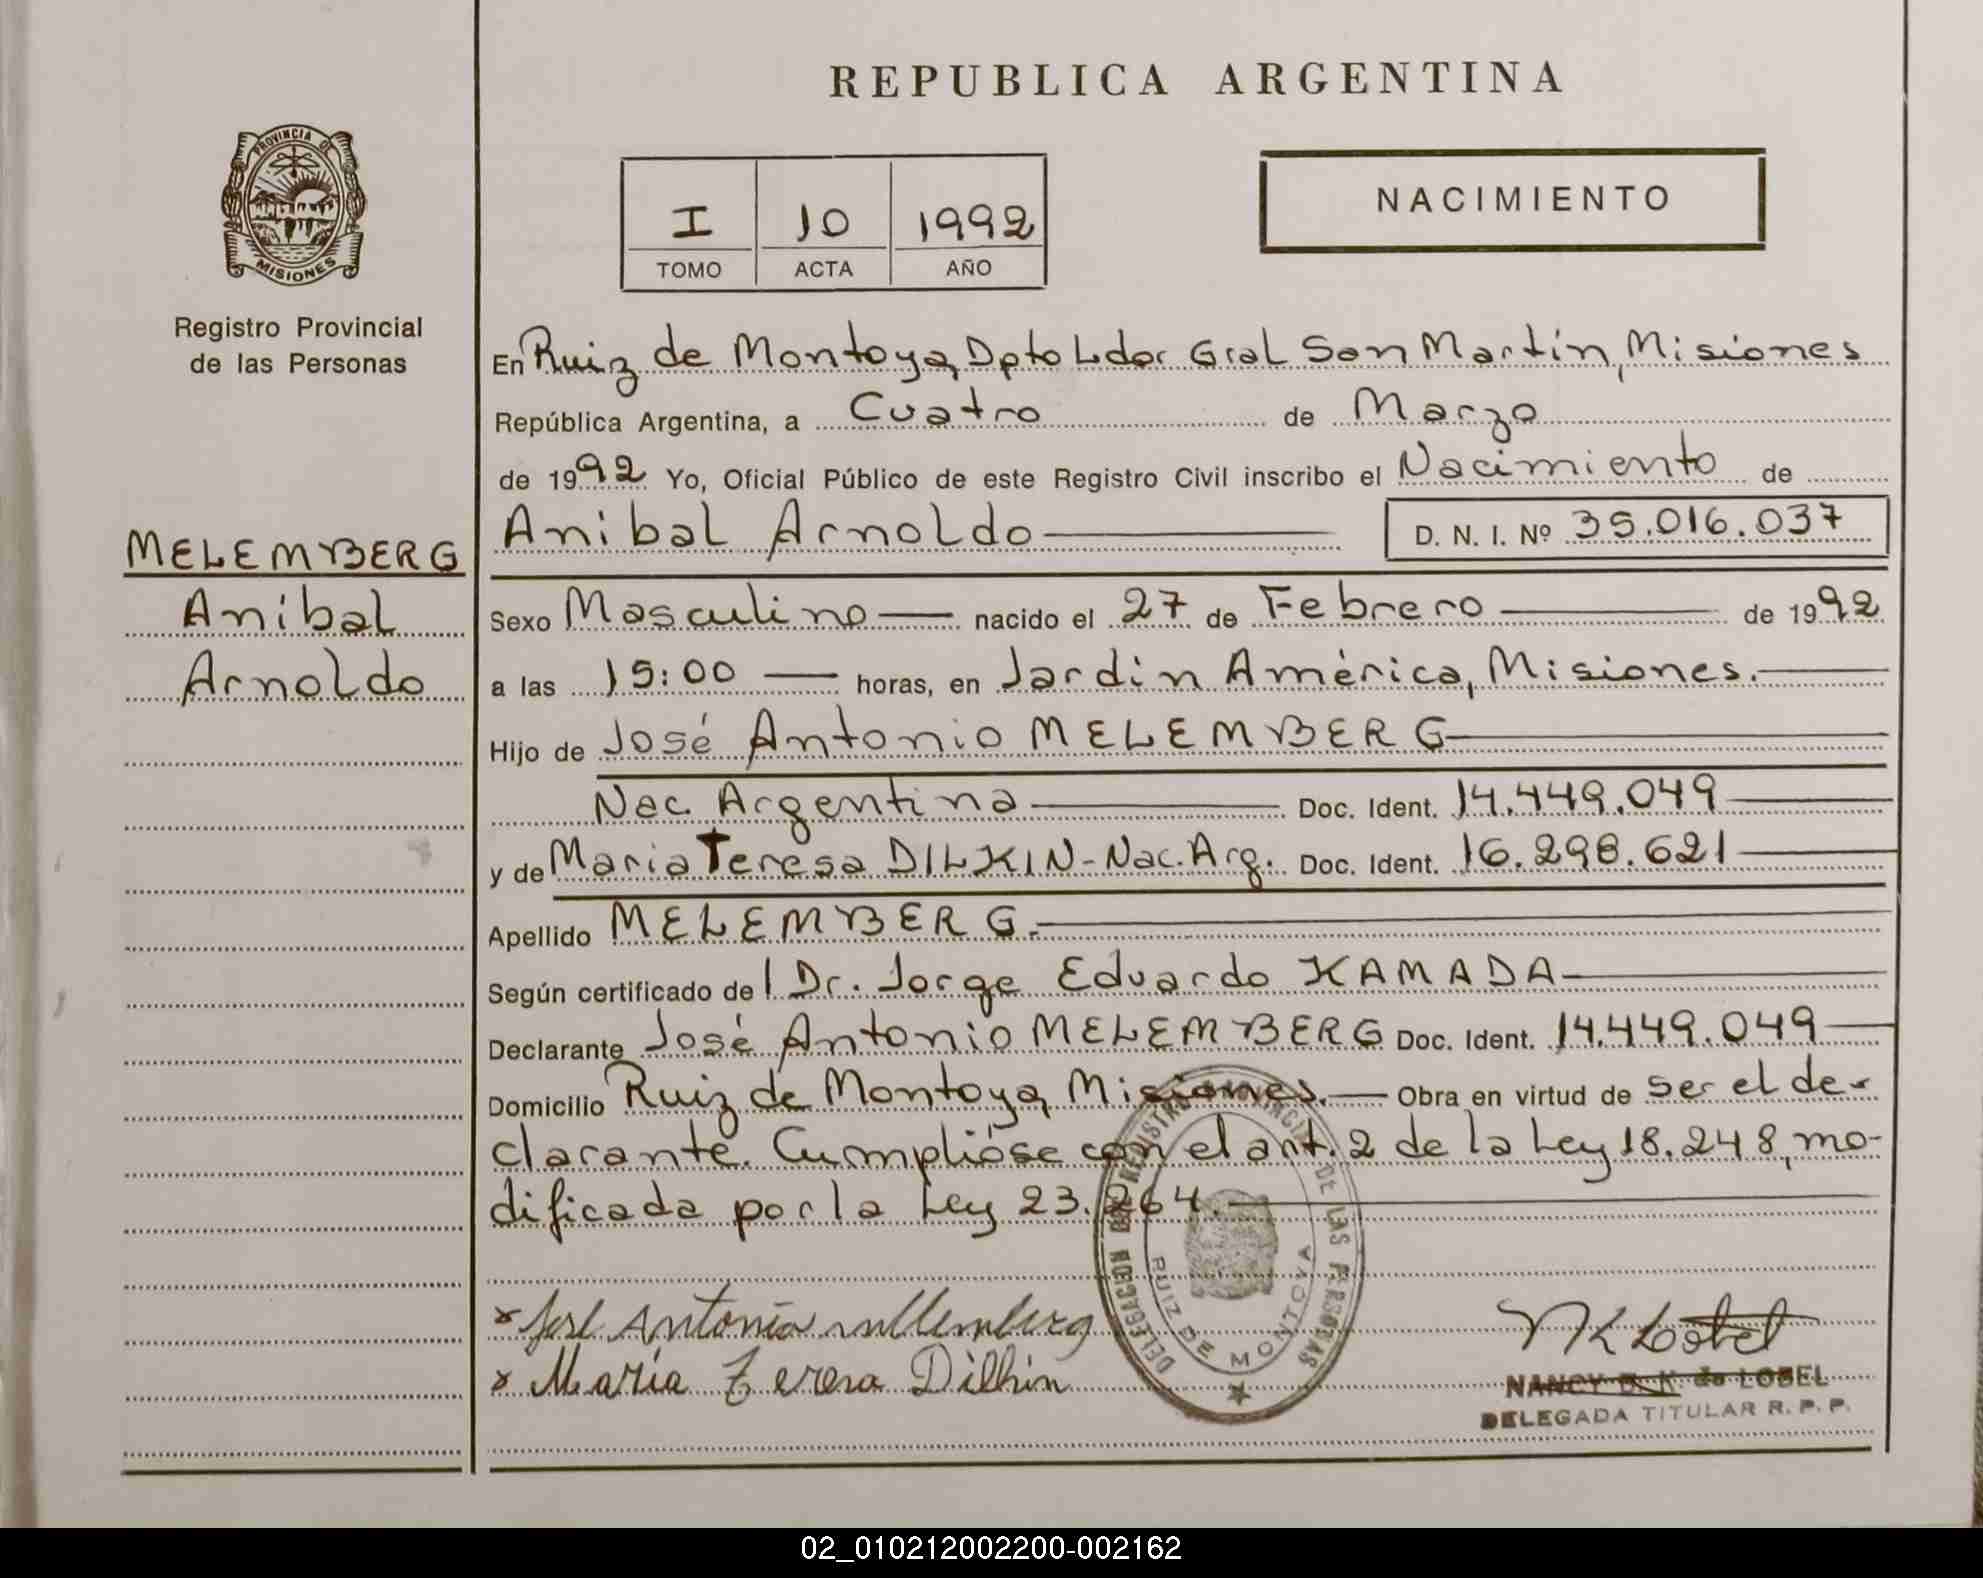 REPUBLICA ARGENTINA
PROVINCIA DE
MISIONES
Registro Provincial
de las Personas
I 10 1992
TOMO ACTA AÑO
NACIMIENTO
En Ruiz de Montoya, Dpto Ldor Gral San Martín, Misiones
República Argentina, a Cuatro de Marzo
de 1992 Yo, Oficial Público de este Registro Civil inscribo el Nacimiento de
Aníbal Arnoldo D. N. I. Nº 35.016.037
MELEMBERG
Aníbal
Arnoldo
Sexo Masculino nacido el 27 de Febrero de 1992
a las 15:00 horas, en Jardín América, Misiones.
Hijo de José Antonio MELEMBERG
Nac. Argentina Doc. Ident. 14.449.049
y de María Teresa DILKIN - Nac. Arg. Doc. Ident. 16.298.621
Apellido MELEMBERG.
Según certificado del Dr. Jorge Eduardo KAMADA
Declarante José Antonio MELEMBERG Doc. Ident. 14.449.049
Domicilio Ruiz de Montoya, Misiones. Obra en virtud de ser el de-
clarante. Cumplióse con el art. 2 de la Ley 18.248, mo-
dificada por la Ley 23.264.
DELEGACION DEL REGISTRO PROVINCIAL DE LAS PERSONAS
RUIZ DE MONTOYA
x José Antonio mellemberg
x María Teresa Dilkin
NK Lobel
NANCY B. K. de LOBEL
DELEGADA TITULAR R. P. P.
02_010212002200-002162